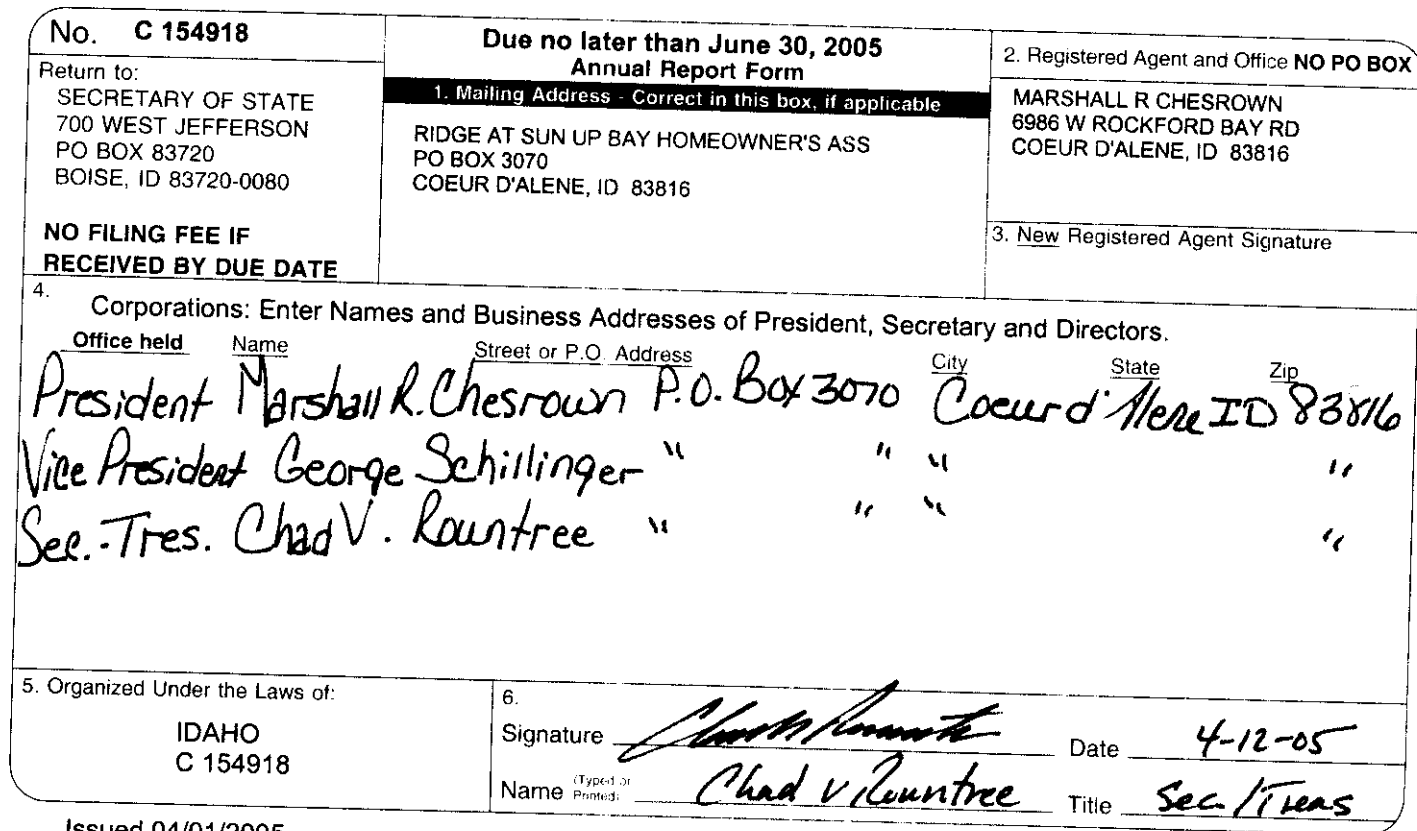 No. C 154918
Return to:
SECRETARY OF STATE
700 WEST JEFFERSON
PO BOX 83720
BOISE, ID 83720-0080
NO FILING FEE IF
RECEIVED BY DUE DATE
Due no later than June 30, 2005
Annual Report Form
1. Mailing Address - Correct in this box, if applicable
RIDGE AT SUN UP BAY HOMEOWNER'S ASS
PO BOX 3070
COEUR D'ALENE, ID 83816
2. Registered Agent and Office NO PO BOX
MARSHALL R CHESROWN
6986 W ROCKFORD BAY RD
COEUR D'ALENE, ID 83816
3. New Registered Agent Signature
4. Corporations: Enter Names and Business Addresses of President, Secretary and Directors.
Office held Name Street or P.O. Address City State Zip
President Marshall R. Chesrown P.O. Box 3070 Coeur d'Alene ID 83816
Vice President George Schillinger " " " "
Sec.-Tres. Chad V. Rountree " " " "
5. Organized Under the Laws of:
IDAHO
C 154918
6.
Signature Date 4-12-05
Name (Typed or Printed) Chad V. Rountree Title Sec/Treas
Issued 04/01/2005